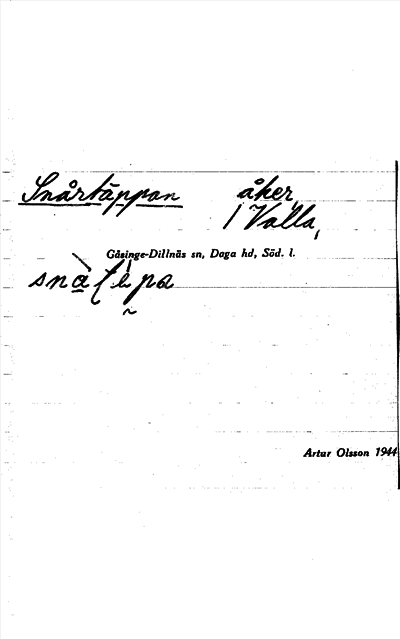 Snårtäppan åker,
/ Valla,
Gåsinge-Dillnäs sn, Daga hd, Söd. l.
Artur Olsson 1944